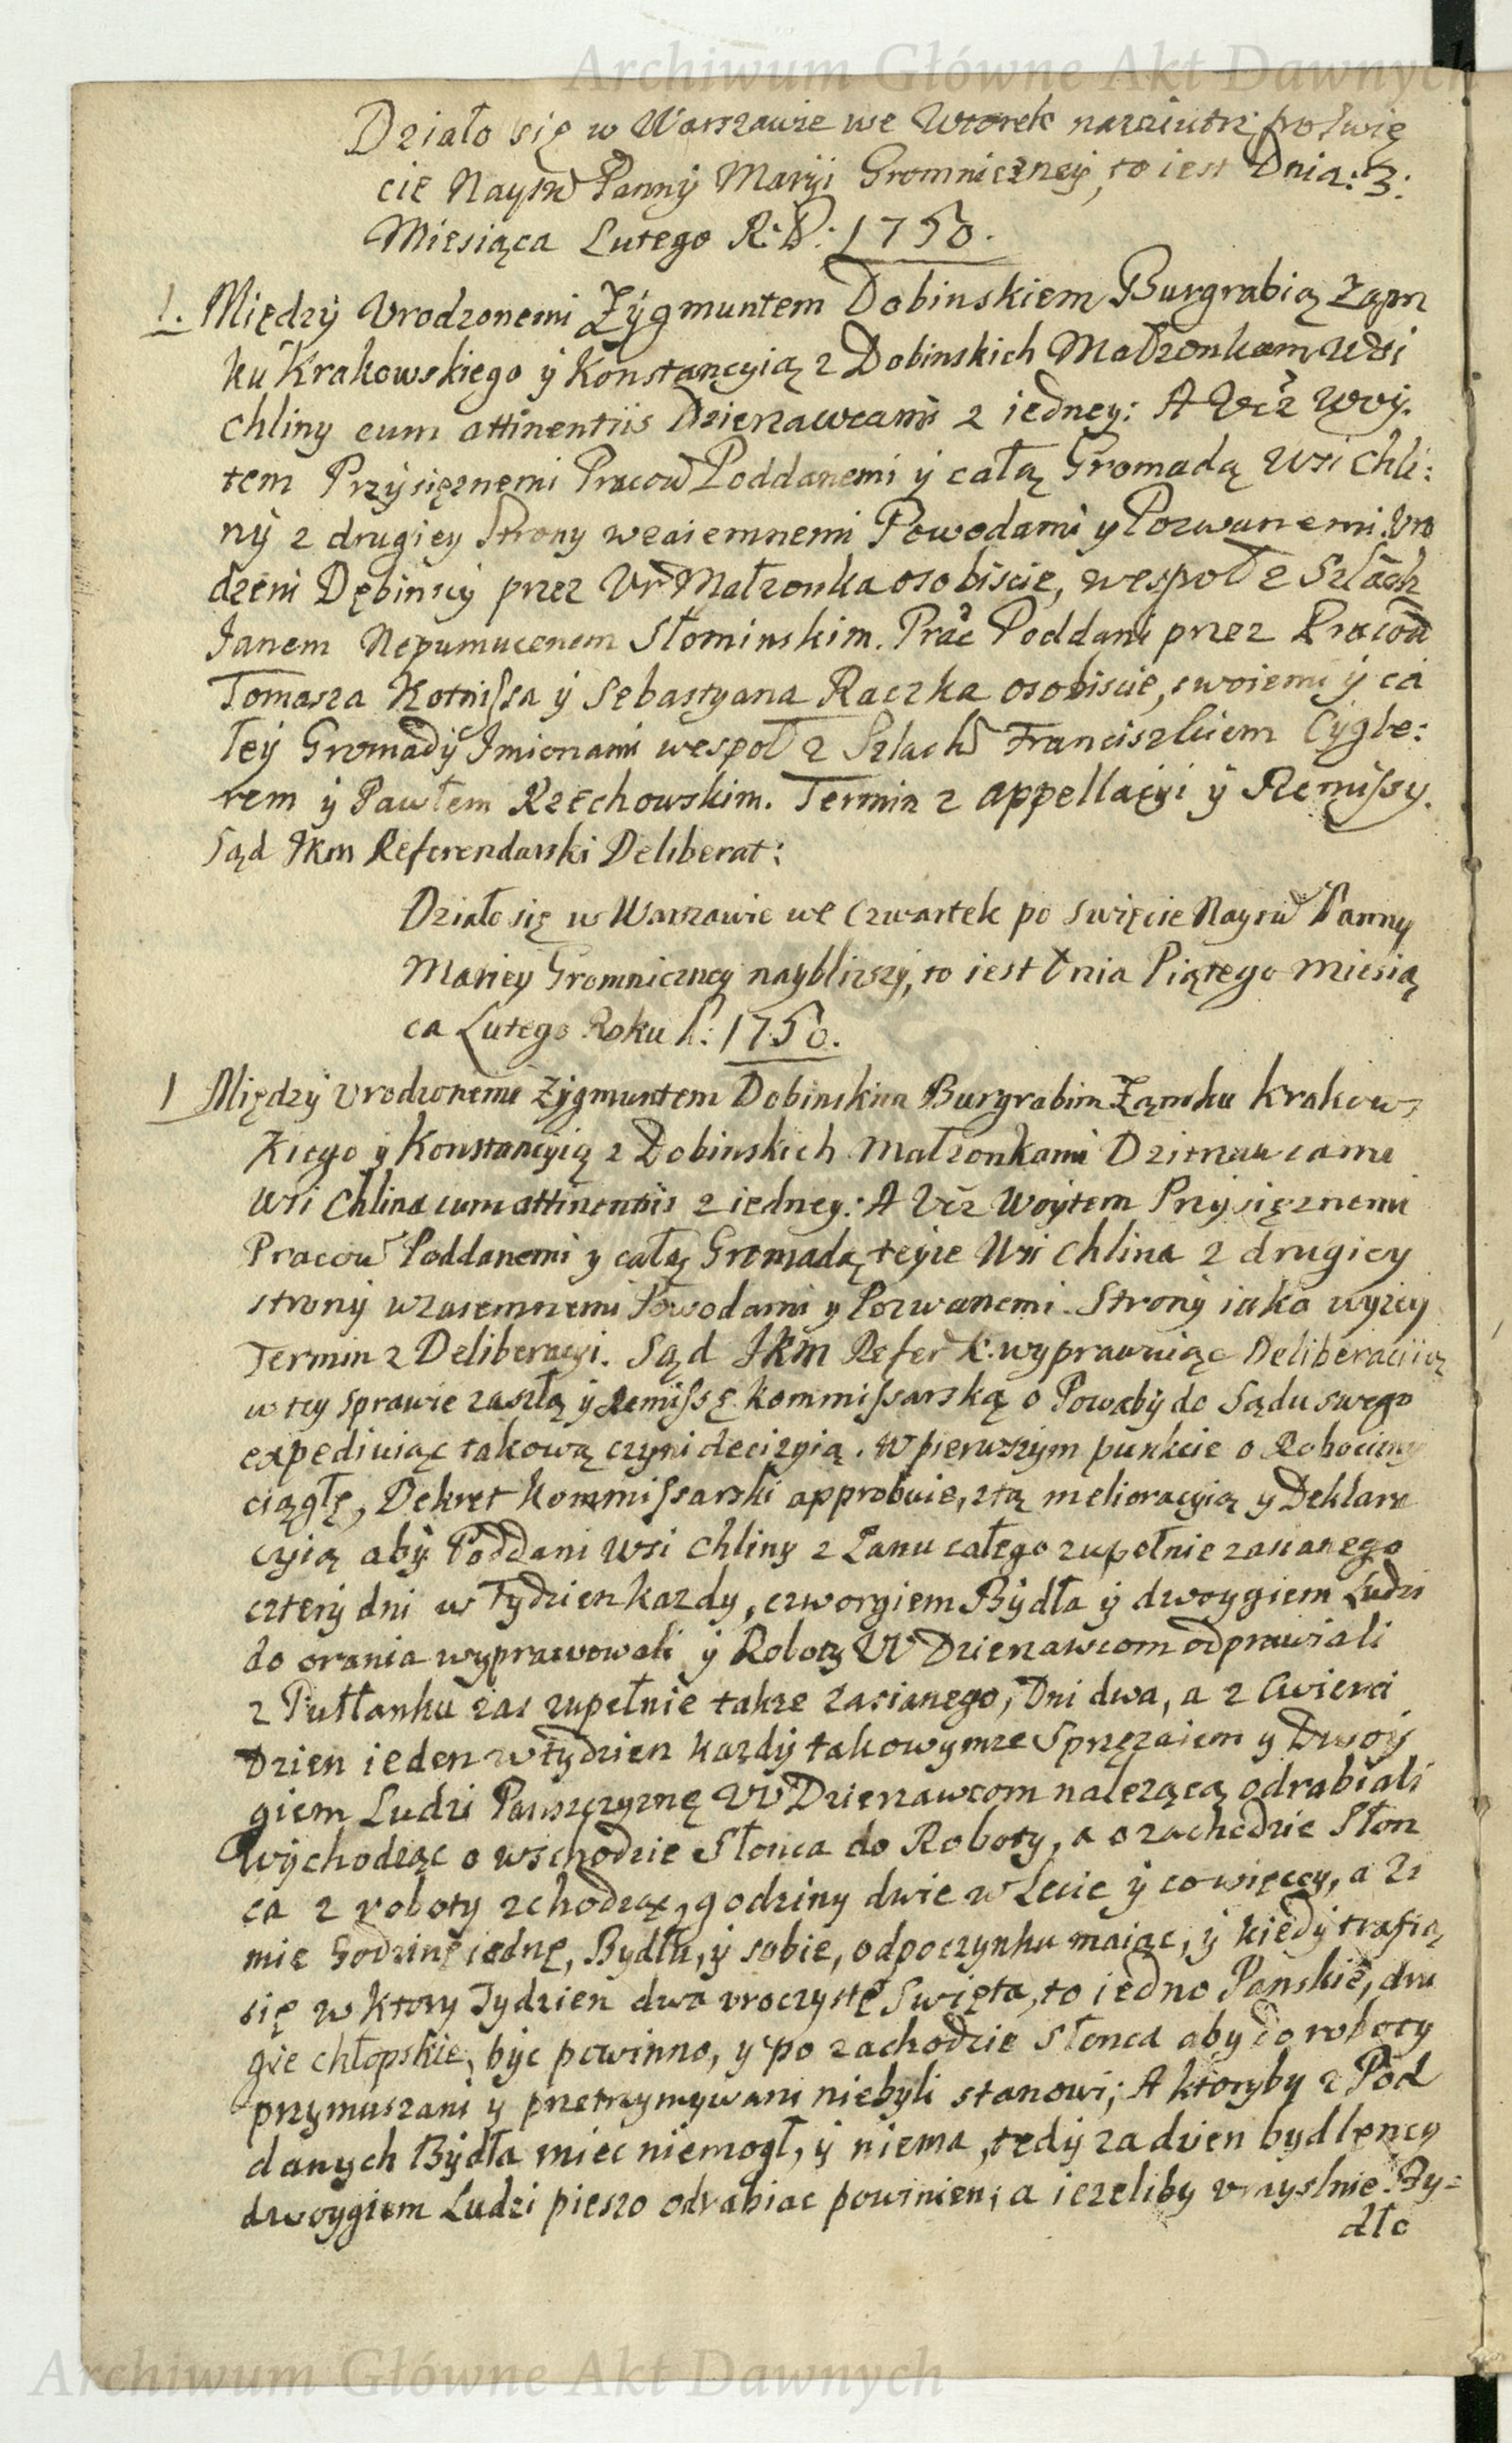 Archiwum Główne Akt Dawnych
Działo się w Warszawie we Wtorek nazaiutrz po Swię
cie Nayśw Panny Maryi Gromniczney, to iest Dnia: 3:
Miesiąca Lutego R: P: 1750.
1. Między Urodzonemi Zygmuntem Dobinskiem Burgrabią Zam
ku Krakowskiego y Konstancyią z Dobinskich Małzonkami Wsi
Chliny cum attinentiis Dzierzawcami z iedney: A Ucz Woy.
tem Przysięznemi Pracow Poddanemi y całą Gromadą Wsi Chli:
ny z drugiey Strony wzaiemnemi Powodami y Pozwanemi. Uro
dzeni Dębinscy przez Ur Małzonka osobiscie, wespoł z Szlach
Janem Nepumucenem Słominskim. Prac Poddani przez Pracow
Tomasza Kotnissa y Sebastyana Raczka osobiscie, swoiemi y ca
łey Gromady Imionami wespoł z Szlach Franciszkiem Cygle:
rem y Pawłem Rzechowskim. Termin z appellacyi y Remissy.
Sąd Jkm Referendarski Deliberat:
Działo się w Warszawie we Czwartek po Swięcie Nayśw Panny
Mariey Gromniczney naybliszy, to iest Dnia Piątego Miesią
ca Lutego Roku P: 1750.
1 Między Urodzonemi Zygmuntem Dobinskim Burgrabim Zamku Krakow:
skiego y Konstancyią z Dobinskich Małzonkami Dzierzawcami
Wsi Chlina cum attinentiis z iedney: A Ucz Woytem Przysięznemi
Pracow Poddanemi y całą Gromadą teyze Wsi Chlina z drugiey
strony wzaiemnemi Powodami y Pozwanemi. Strony iako wyzey
Termin z Deliberacyi. Sąd Jkm Refer K: wyprawuiąc Deliberacyią
w tey sprawie zaszłą y Remissę Kommissarską o Powaby do Sądu swego
expediuiąc takową czyni decizyią. W pierwszym punkcie o Robocizny
ciągłę, Dekret Kommissarski approbuie, z tą melioracyią y Deklara
cyią aby Poddani Wsi Chliny z Łanu całego zupełnie zasianego
cztery dni w Tydzien kazdy, czworgiem Bydła y dwoygiem Ludzi
do orania wyprawowali y Roboty UU Dzierzawcom odprawiali
z Pułłanku zas zupełnie takze zasianego, Dni dwa, a z Cwierci
Dzien ieden w tydzien kazdy takowymze Sprzęzaiem y Dwoy
giem Ludzi Panszczyznę UU Dzierzawcom nalezącą odrabiali
Wychodząc o wschodzie Słonca do Roboty, a o zachodzie Słon
ca z roboty zchodząc, godziny dwie w Lecie y co więcey, a Zi
mie Godzinę iednę, Bydłu, y sobie, odpoczynku maiąc, y kiedy trafią
się w ktory Tydzien dwa uroczyste Swięta, to iedno Panskie, dru
gie chłopskie, byc powinno, y po zachodzie Słonca aby do roboty
przymuszani y przetrzymywani niebyli stanowi; A ktoryby z Pod
danych Bydła miec niemogł, y niema, tedy za dzien bydlęncy
dwoygiem Ludzi pieszo odrabiac powinien; a iezeliby umyslnie By=
dło
Archiwum Główne Akt Dawnych